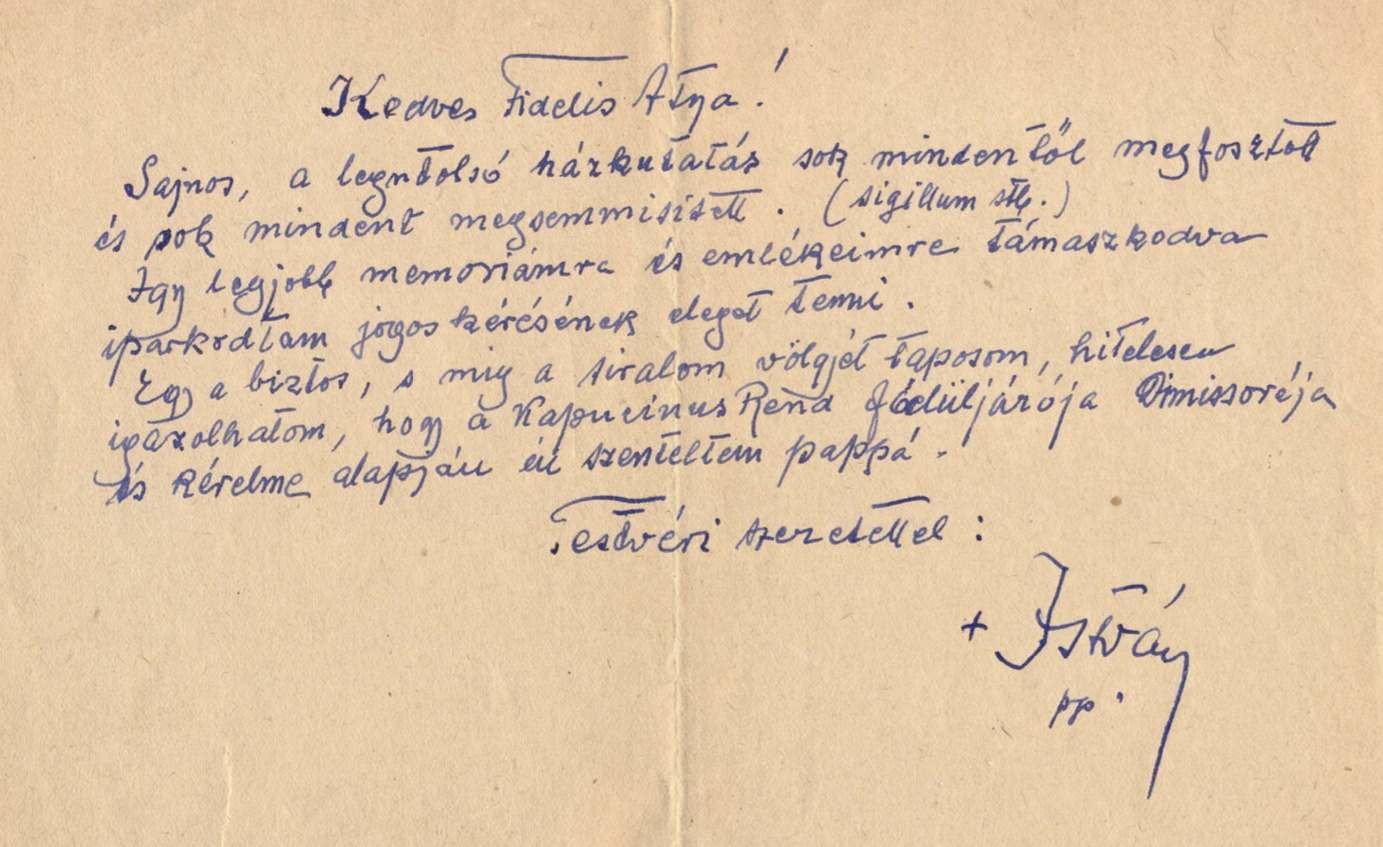 Kedves Fidelis Atya!
Sajnos, a legutolsó házkutatás sok mindentől megfosztott
és sok mindent megsemmisitett. (sigillum stb.)
Igy legjobb memoriámra és emlékeimre támaszkodva
iparkodtam jogos kérésének eleget tenni.
Egy a biztos, s mig a siralom völgyét taposom, hitelesen
igazolhatom, hogy a Kapucinus Rend főelüljárója Dimissoréja
és kérelme alapján én szenteltem pappá.
Testvéri szeretettel:
+ István
pp.